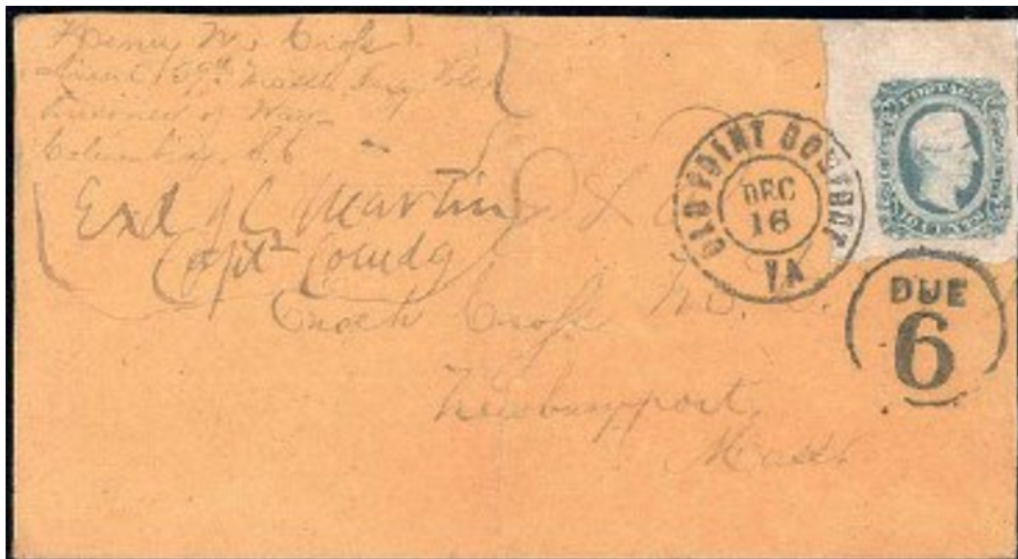 Henry W. Cross
Lieut 59th Mass
Prisoner of War
Columbia, S.C
Exd J C Martin
Capt Comdg
OLD POINT COMFORT
DEC
16
VA
POSTAGE
DUE
6
Enoch Cross M. D.
Newburyport,
Mass.